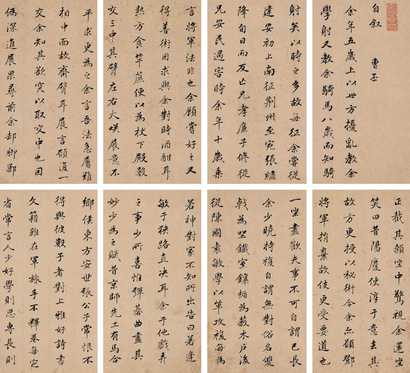 自敘 曹丕
余年五歲上以世方擾亂教余
學射又教余騎馬八歲而知騎
射矣以時之多故每征余常從
建安初上南征荊州至宛張繡
降旬日而反亡兄孝廉子修從
兄安民遇害時余年十歲乘
言將軍法非也余顧嘗好之又
得善術因求與余對時酒酣耳
熱方食芊蔗便以為杖下殿數
交三中其臂左右大笑展意不
平求更為之余言吾法急屬難
相中面故齊臂耳展言願復一
交余知其欲突以取交中也因
偽深進展果尋前余卻腳鄛
正截其顙坐中驚視余還坐
笑曰昔陽慶使淳于意去其
故方更授以秘術今余亦願鄧
將軍捐棄故伎更受要道也
一坐盡歡夫事不可自謂己長
余少曉持複自謂無對俗名雙
戟為坐鐵室鑲楯為蔽木戶後
從陳國袁敏學以單攻複每為
若神對家不知所出曰若逢
敏于狹路直決耳余于他戲弄
之事少所喜惟彈棊略盡其
妙少為之賦昔京師先工有馬合
鄉侯東方安世張公子常恨不
得與彼數子者對上雅好詩書
文籍雖在軍旅手不釋卷每定
省常言人少好學則思專長則